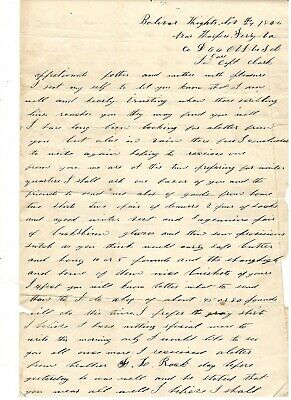 Bolivar Heights, Oct 29 1862
Near Harpers Ferry Va
Co D 66 O V I 
In Care Capt Clark
affectionate father and mother with pleasure
I set my self to let you know that I am
well and hearty trusting when these scribling
lines reaches you thy may find you well
I have long been looking for a letter from
you but alas in vain there fore I conclude
to write again hoping to receive one
from you we are at this time preparing for winter
quarters I shall ask one favor of you and the
friends to send me a box of goods from home
two shirts two pair of drawers 2 pair of socks
and a good winter vest and pair
of buckskin gloves and then some provisions
such as you think would carry safe butter
and honey 4 or 5 pounds and the
and some of them nice of yours
I expect you will know better what to send
than I do a box of about 75 or 80 pounds
will do this time I prefer the gray shirts
I believe I have nothing special more to
write this morning only I would like to see
you all once more I received a letter
from brother Rock day before
yesterday he was well and he stated that
you were all well I believe I shall